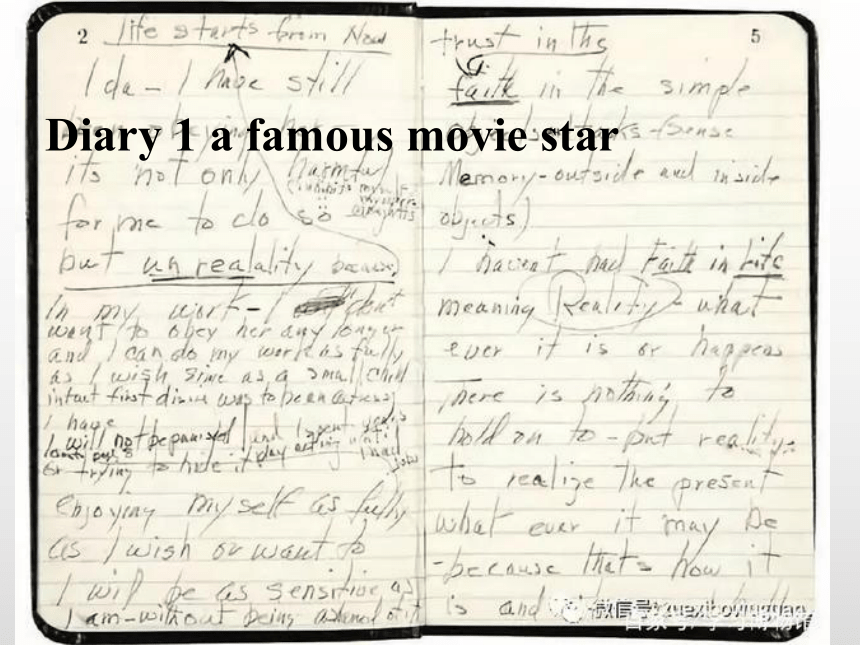 2 life starts from Now
Ida - I have still
Diary 1 a famous movie star
its not only harmful
for me to do so
but unreality because
In my work - I don't
want to obey her any longer
and I can do my work as fully
as I wish since as a small child
intact first desire was to be an actress
I have
I will not be punished and I spent years
or trying to hide it play acting until I had
jobs
enjoying myself as fully
as I wish or want to
I will be as sensitive as
I am - without being ashamed of it
5
trust in the
faith in the simple
objects tasks - (Sense
Memory - outside and inside
objects)
I haven't had Faith in Life
meaning Reality - what
ever it is or happens
There is nothing to
hold on to - but reality
to realize the present
what ever it may be
- because that's how it
is and
微信号: xuexibowuguan
百家号/学习博物馆